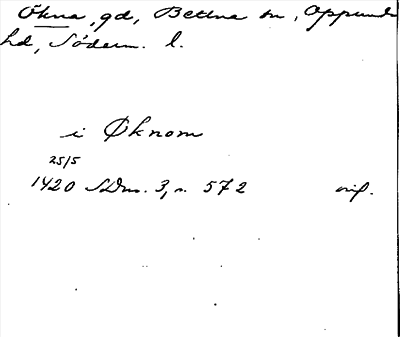 Ökna, gd, Bettna sn, Oppunda
hd, Söderm. l.
i Øknom
25/5
1420 SDns. 3, s. 572 orig.